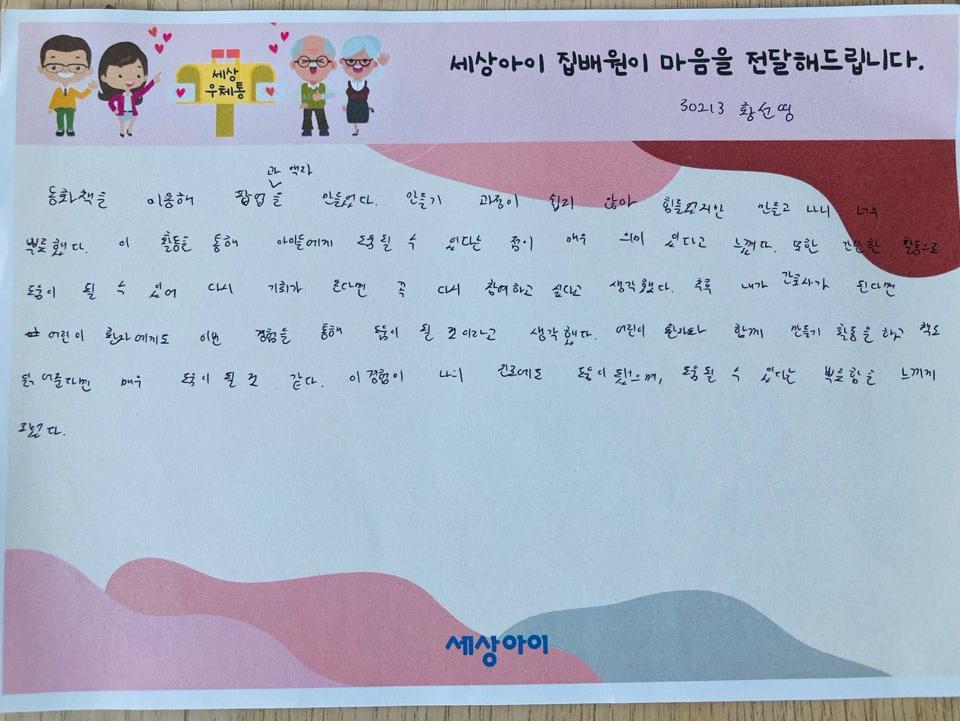 세상아이 집배원이 마음을 전달해드립니다.
세상
우체통
30213 황선영
과 액자
동화책을 이용해 팝업을 만들었다. 만들기 과정이 쉽지 않아 힘들었지만 만들고 나니 너무
뿌듯했다. 이 활동을 통해 아이들에게 도움될 수 있다는 점이 매우 의미 있다고 느꼈다. 또한 간단한 활동으로
도움이 될 수 있어 다시 기회가 온다면 꼭 다시 참여하고 싶다고 생각했다. 추후 내가 간호사가 된다면
어린이 환자에게도 이번 경험을 통해 도움이 될 것이라고 생각했다. 어린이 환자와 함께 만들기 활동을 하고 책도
읽어준다면 매우 도움이 될 것 같다. 이 경험이 나의 진로에도 도움이 됐으며, 도움될 수 있다는 뿌듯함을 느끼게
되었다.
세상아이